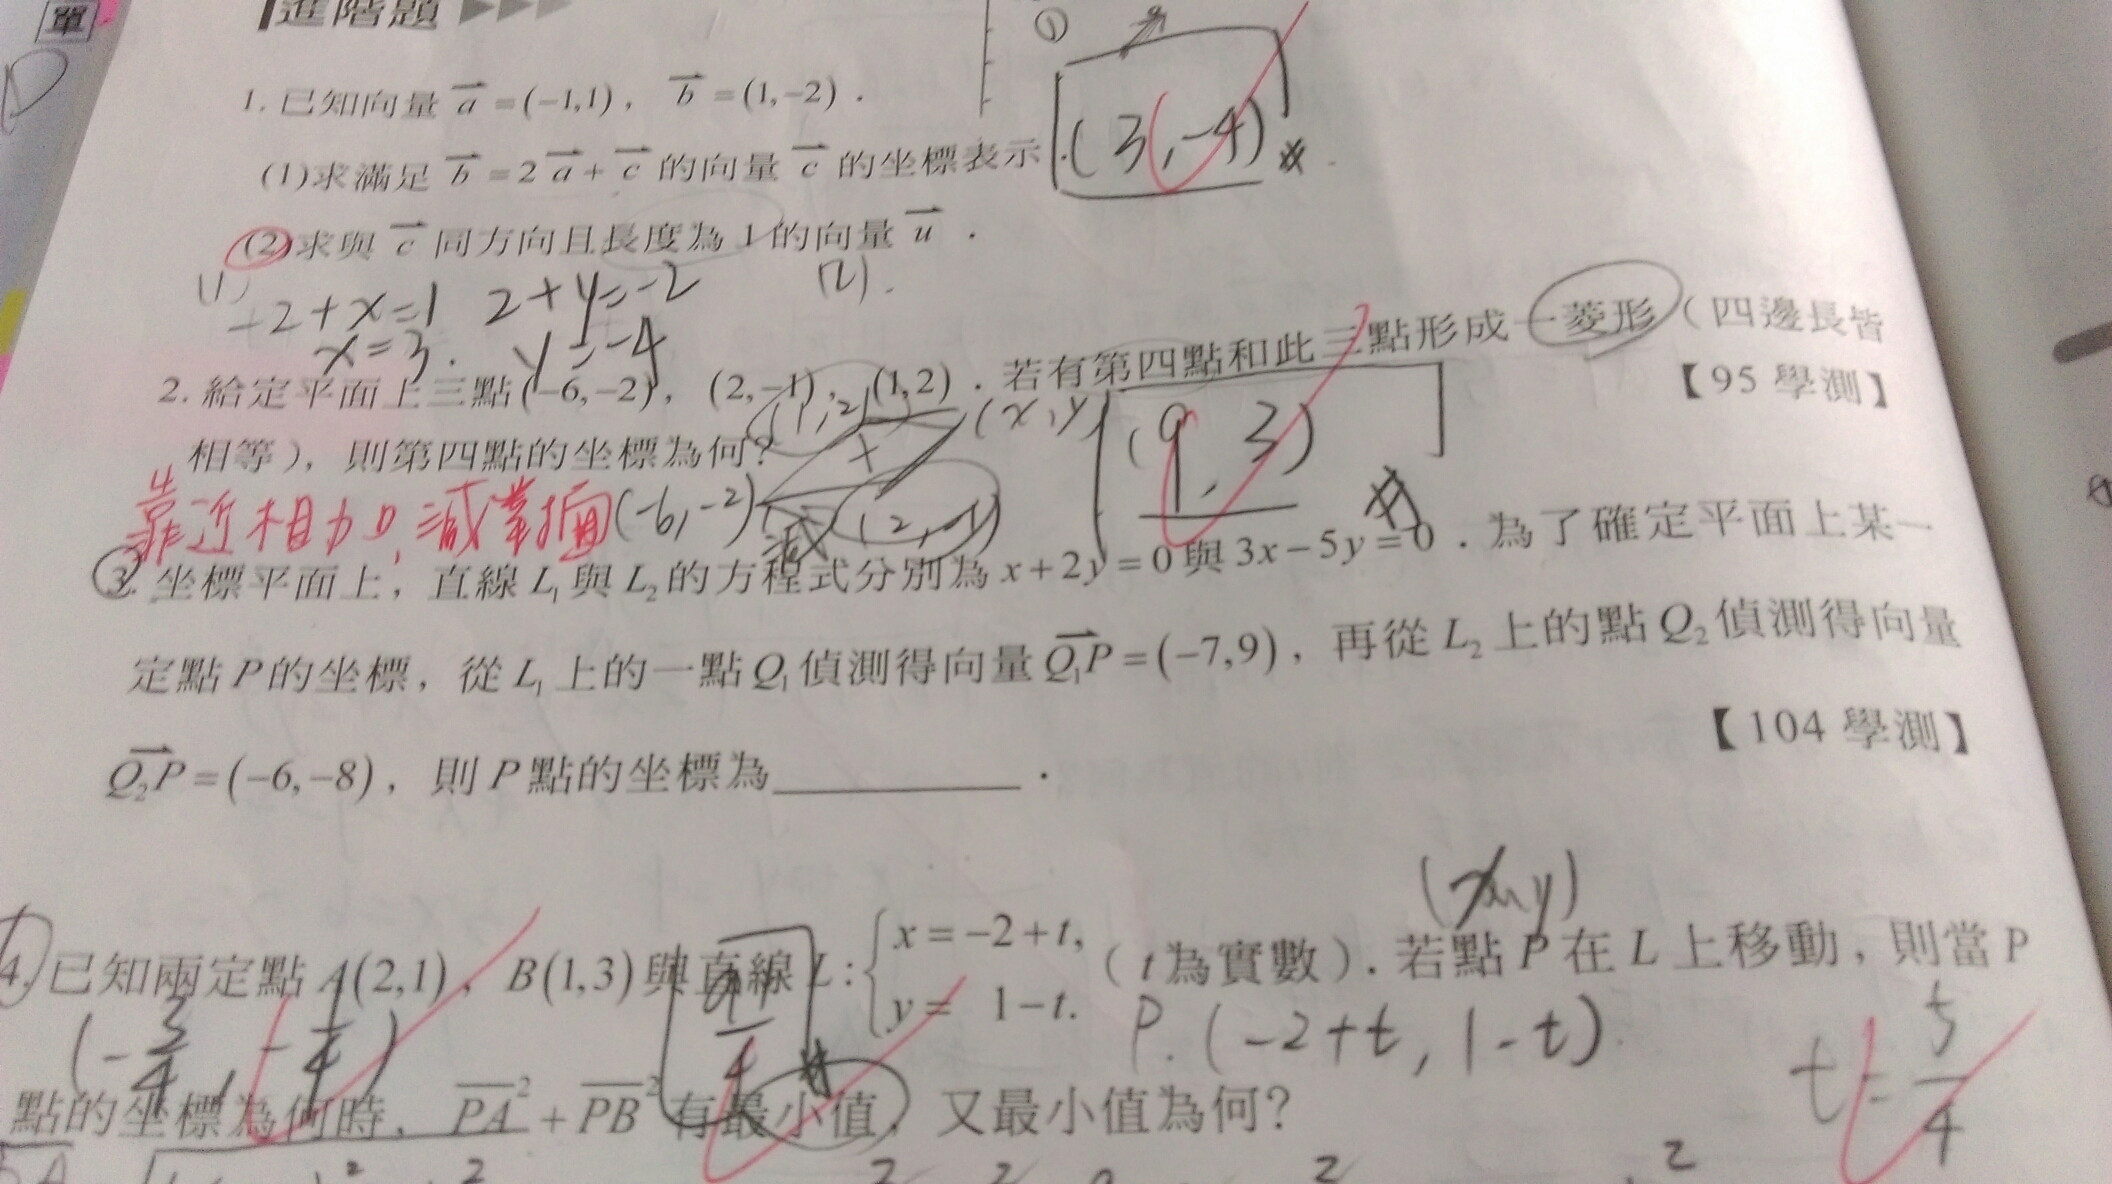 單
進階題
①
1. 已知向量 a = (-1,1)，b = (1,-2)．
(3,-4)
(1)求滿足 b = 2a + c 的向量 c 的坐標表示．
(2)求與 c 同方向且長度為 1 的向量 u．
(1) -2+x=1 2+y=-2 (2).
x=3. y=-4
2. 給定平面上三點(-6,-2)，(2,-1)，(1,2)．若有第四點和此三點形成一菱形（四邊長皆
【95 學測】
(1,2) (x,y) (9,3)
相等），則第四點的坐標為何？
靠近相加，減掉 (-6,-2) 減 (2,-1)
3. 坐標平面上，直線 L₁ 與 L₂ 的方程式分別為 x+2y=0 與 3x-5y=0．為了確定平面上某一
定點 P 的坐標，從 L₁ 上的一點 Q₁ 偵測得向量 Q₁P = (-7,9)，再從 L₂ 上的點 Q₂ 偵測得向量
【104 學測】
Q₂P = (-6,-8)，則 P 點的坐標為＿＿＿＿．
(x,y)
4. 已知兩定點 A(2,1)、B(1,3)與直線 L:{x=-2+t, y= 1-t.（t 為實數）．若點 P 在 L 上移動，則當 P
P.(-2+t, 1-t) t=5/4
點的坐標為何時，PA²+PB² 有最小值，又最小值為何？